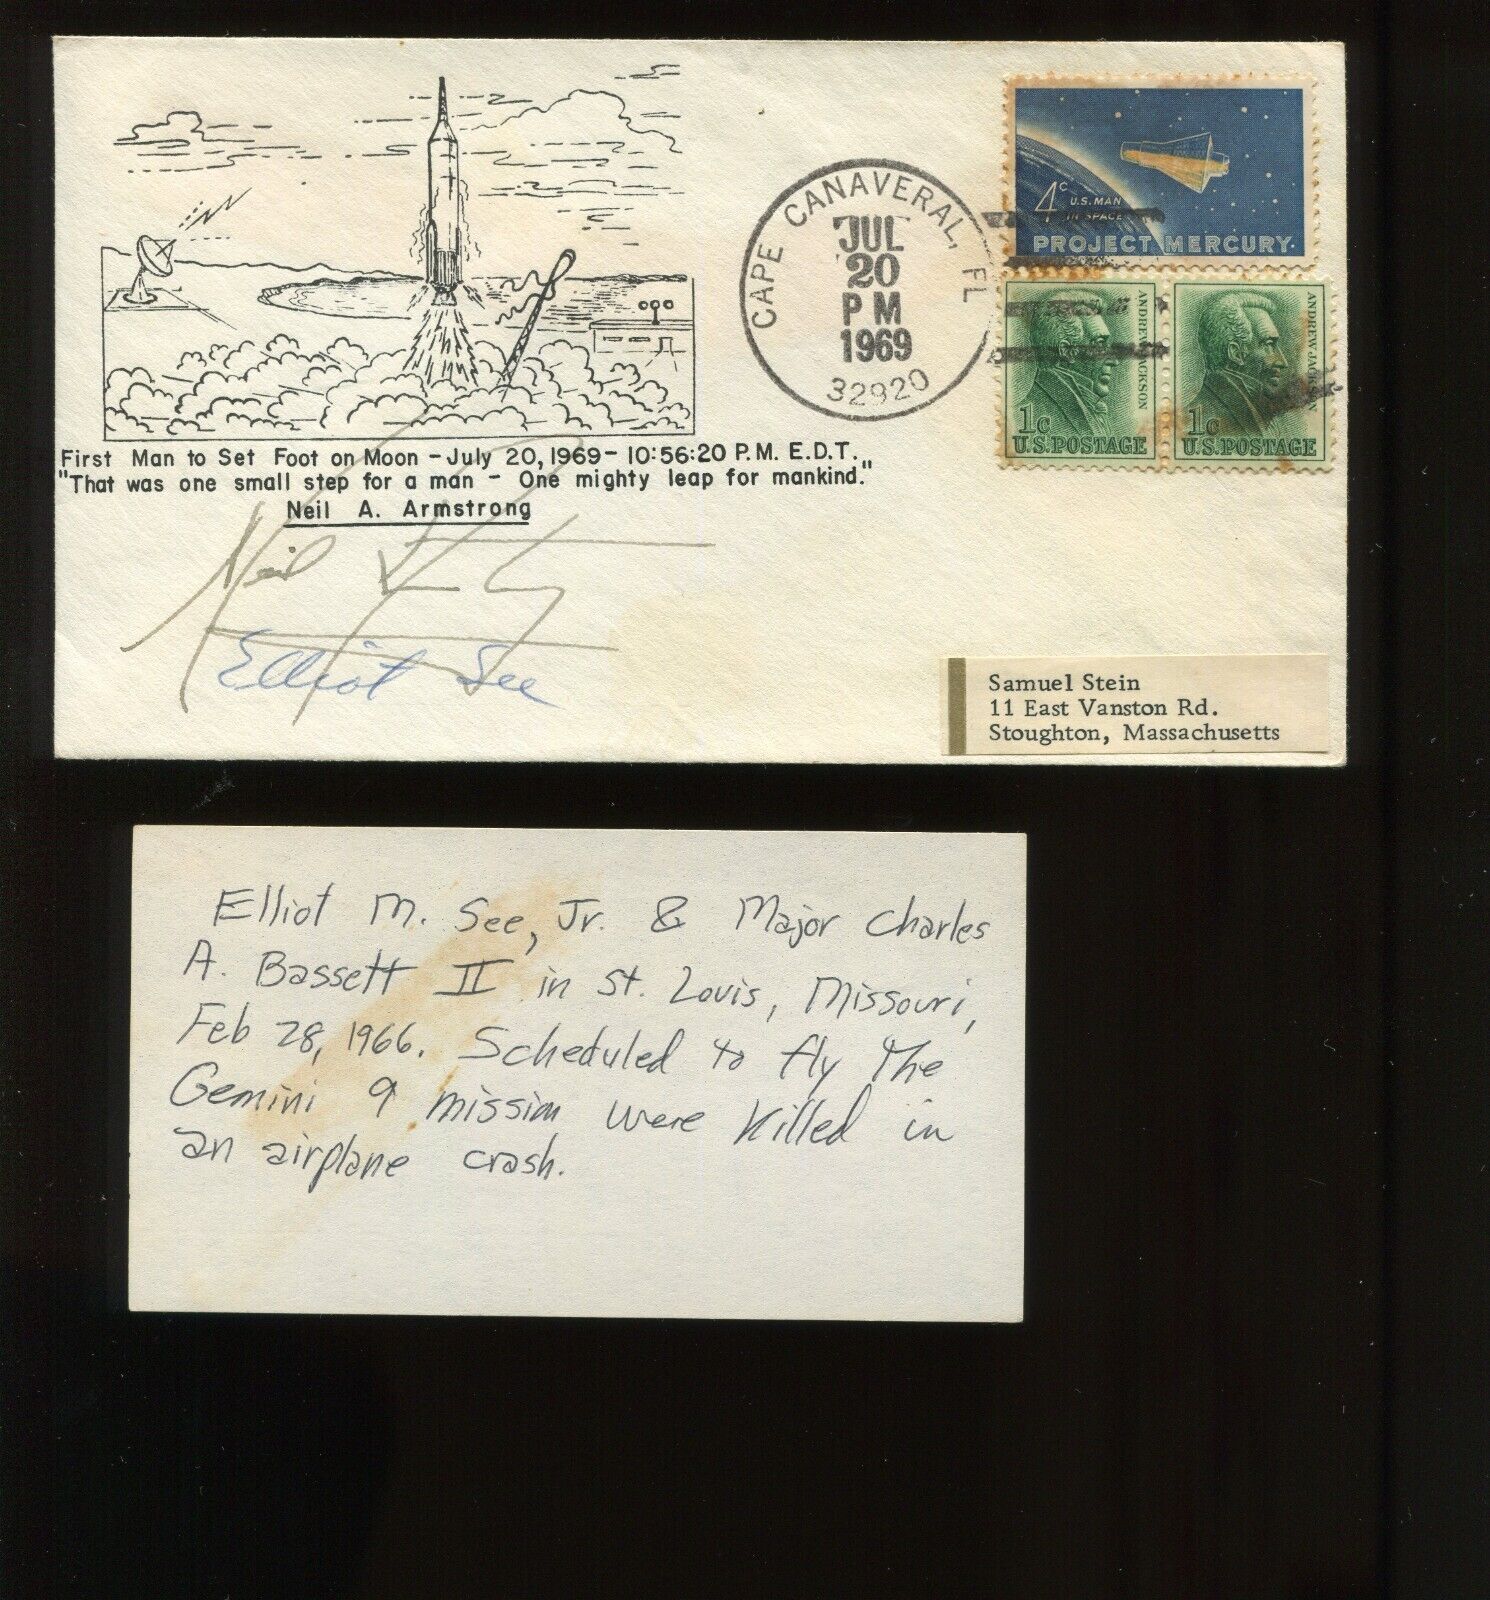 CAPE CANAVERAL, FL
JUL
20
PM
1969
32920
4c
U.S. MAN
IN SPACE
PROJECT MERCURY
ANDREW JACKSON
1c
U.S. POSTAGE
ANDREW JACKSON
1c
U.S. POSTAGE
First Man to Set Foot on Moon - July 20, 1969 - 10:56:20 P.M. E.D.T.
"That was one small step for a man - One mighty leap for mankind."
Neil A. Armstrong
Neil
Elliot See
Samuel Stein
11 East Vanston Rd.
Stoughton, Massachusetts
Elliot M. See, Jr. & Major Charles
A. Bassett II in St. Louis, Missouri,
Feb 28, 1966. Scheduled to fly the
Gemini 9 mission were killed in
an airplane crash.